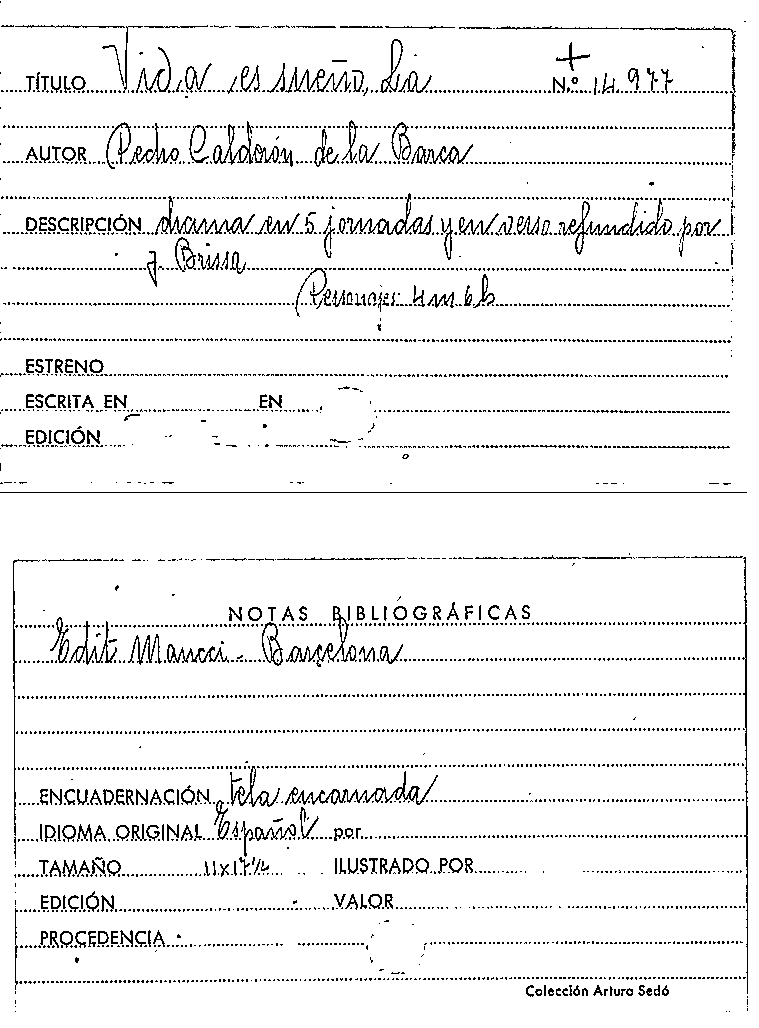 TÍTULO Vida es sueño, La N.º 14977
AUTOR Pedro Calderón de la Barca
DESCRIPCIÓN drama en 5 jornadas y en verso refundido por
J. Brissa
Personajes 4m 6h
ESTRENO
ESCRITA EN EN
EDICIÓN
NOTAS BIBLIOGRÁFICAS
Edit Maucci - Barcelona
ENCUADERNACIÓN tela encarnada
IDIOMA ORIGINAL Español por
TAMAÑO 11x17½ ILUSTRADO POR
EDICIÓN VALOR
PROCEDENCIA
Colección Arturo Sedó